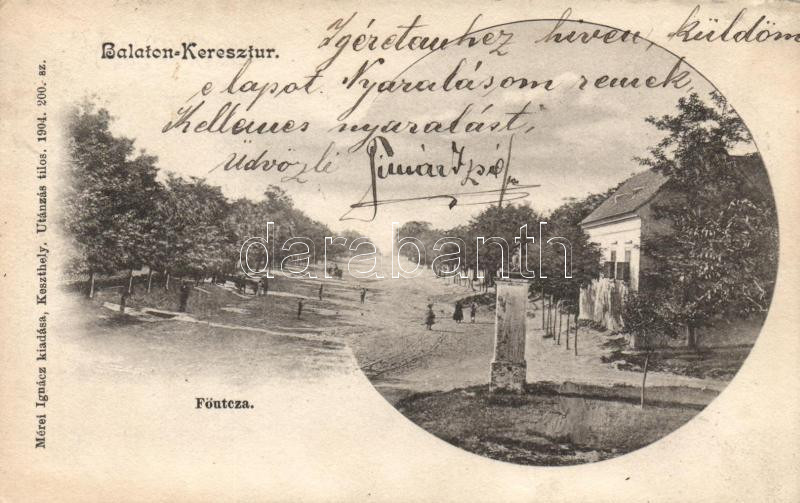 Balaton-Keresztur.
Igéretemhez hiven, küldöm
e lapot. Nyaralásom remek,
Kellemes nyaralást,
Üdvözlí
darabanth
Főutcza.
Mérei Ignácz kiadása, Keszthely. Utánzás tilos. 1904. 200. sz.